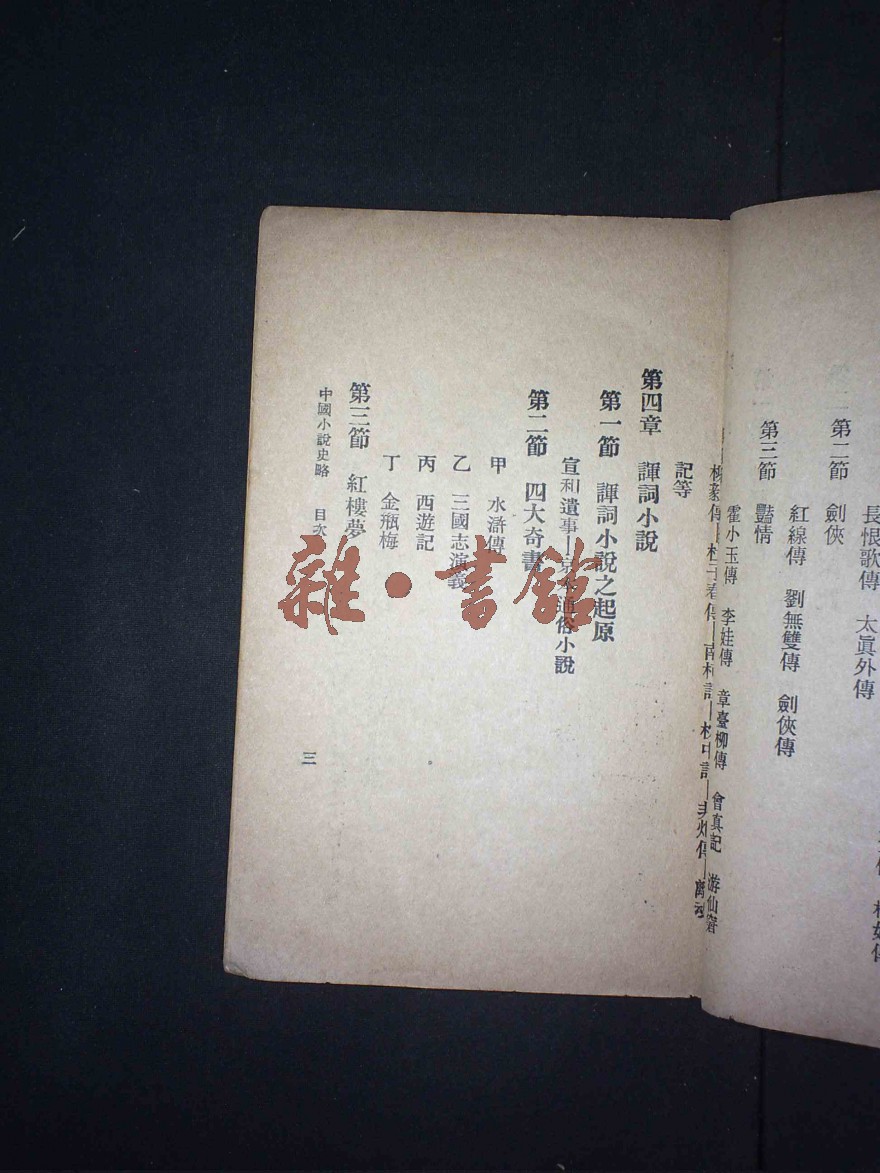 長恨歌傳　太眞外傳
第二節　劍俠
紅線傳　劉無雙傳　劍俠傳
第三節　豔情
霍小玉傳　李娃傳　章臺柳傳　會真記　游仙窟
柳毅傳—杜子春傳—南柯記—枕中記
記等
第四章　諢詞小說
第一節　諢詞小說之起原
宣和遺事—京本通俗小說
第二節　四大奇書
甲　水滸傳
乙　三國志演義
丙　西遊記
丁　金瓶梅
第三節　紅樓夢
中國小說史略　目次
三
雜·書館